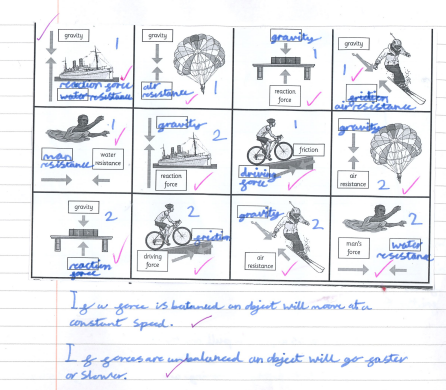 gravity
1
reaction force
water resistance
gravity
air
resistance
1
gravity
1
reaction
force
gravity
1
friction
air resistance
1
man
resistance
water
resistance
gravity
2
reaction
force
1
friction
driving
force
gravity
air
resistance
2
gravity
2
reaction
force
2
friction
driving
force
gravity
2
air
resistance
2
man's
force
water
resistance
If a force is balanced an object will move at a
constant speed.
If forces are unbalanced an object will go faster
or slower.